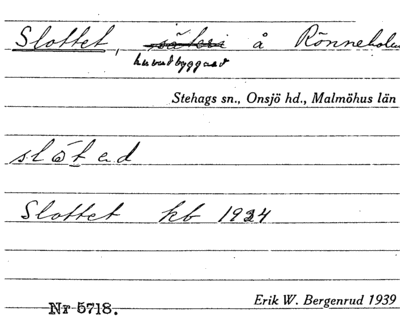 Slottet, säteri å Rönneholm
huvudbyggnad
Stehags sn., Onsjö hd., Malmöhus län
slåtəd
Slottet kb 1924
Nr 5718.
Erik W. Bergenrud 1939